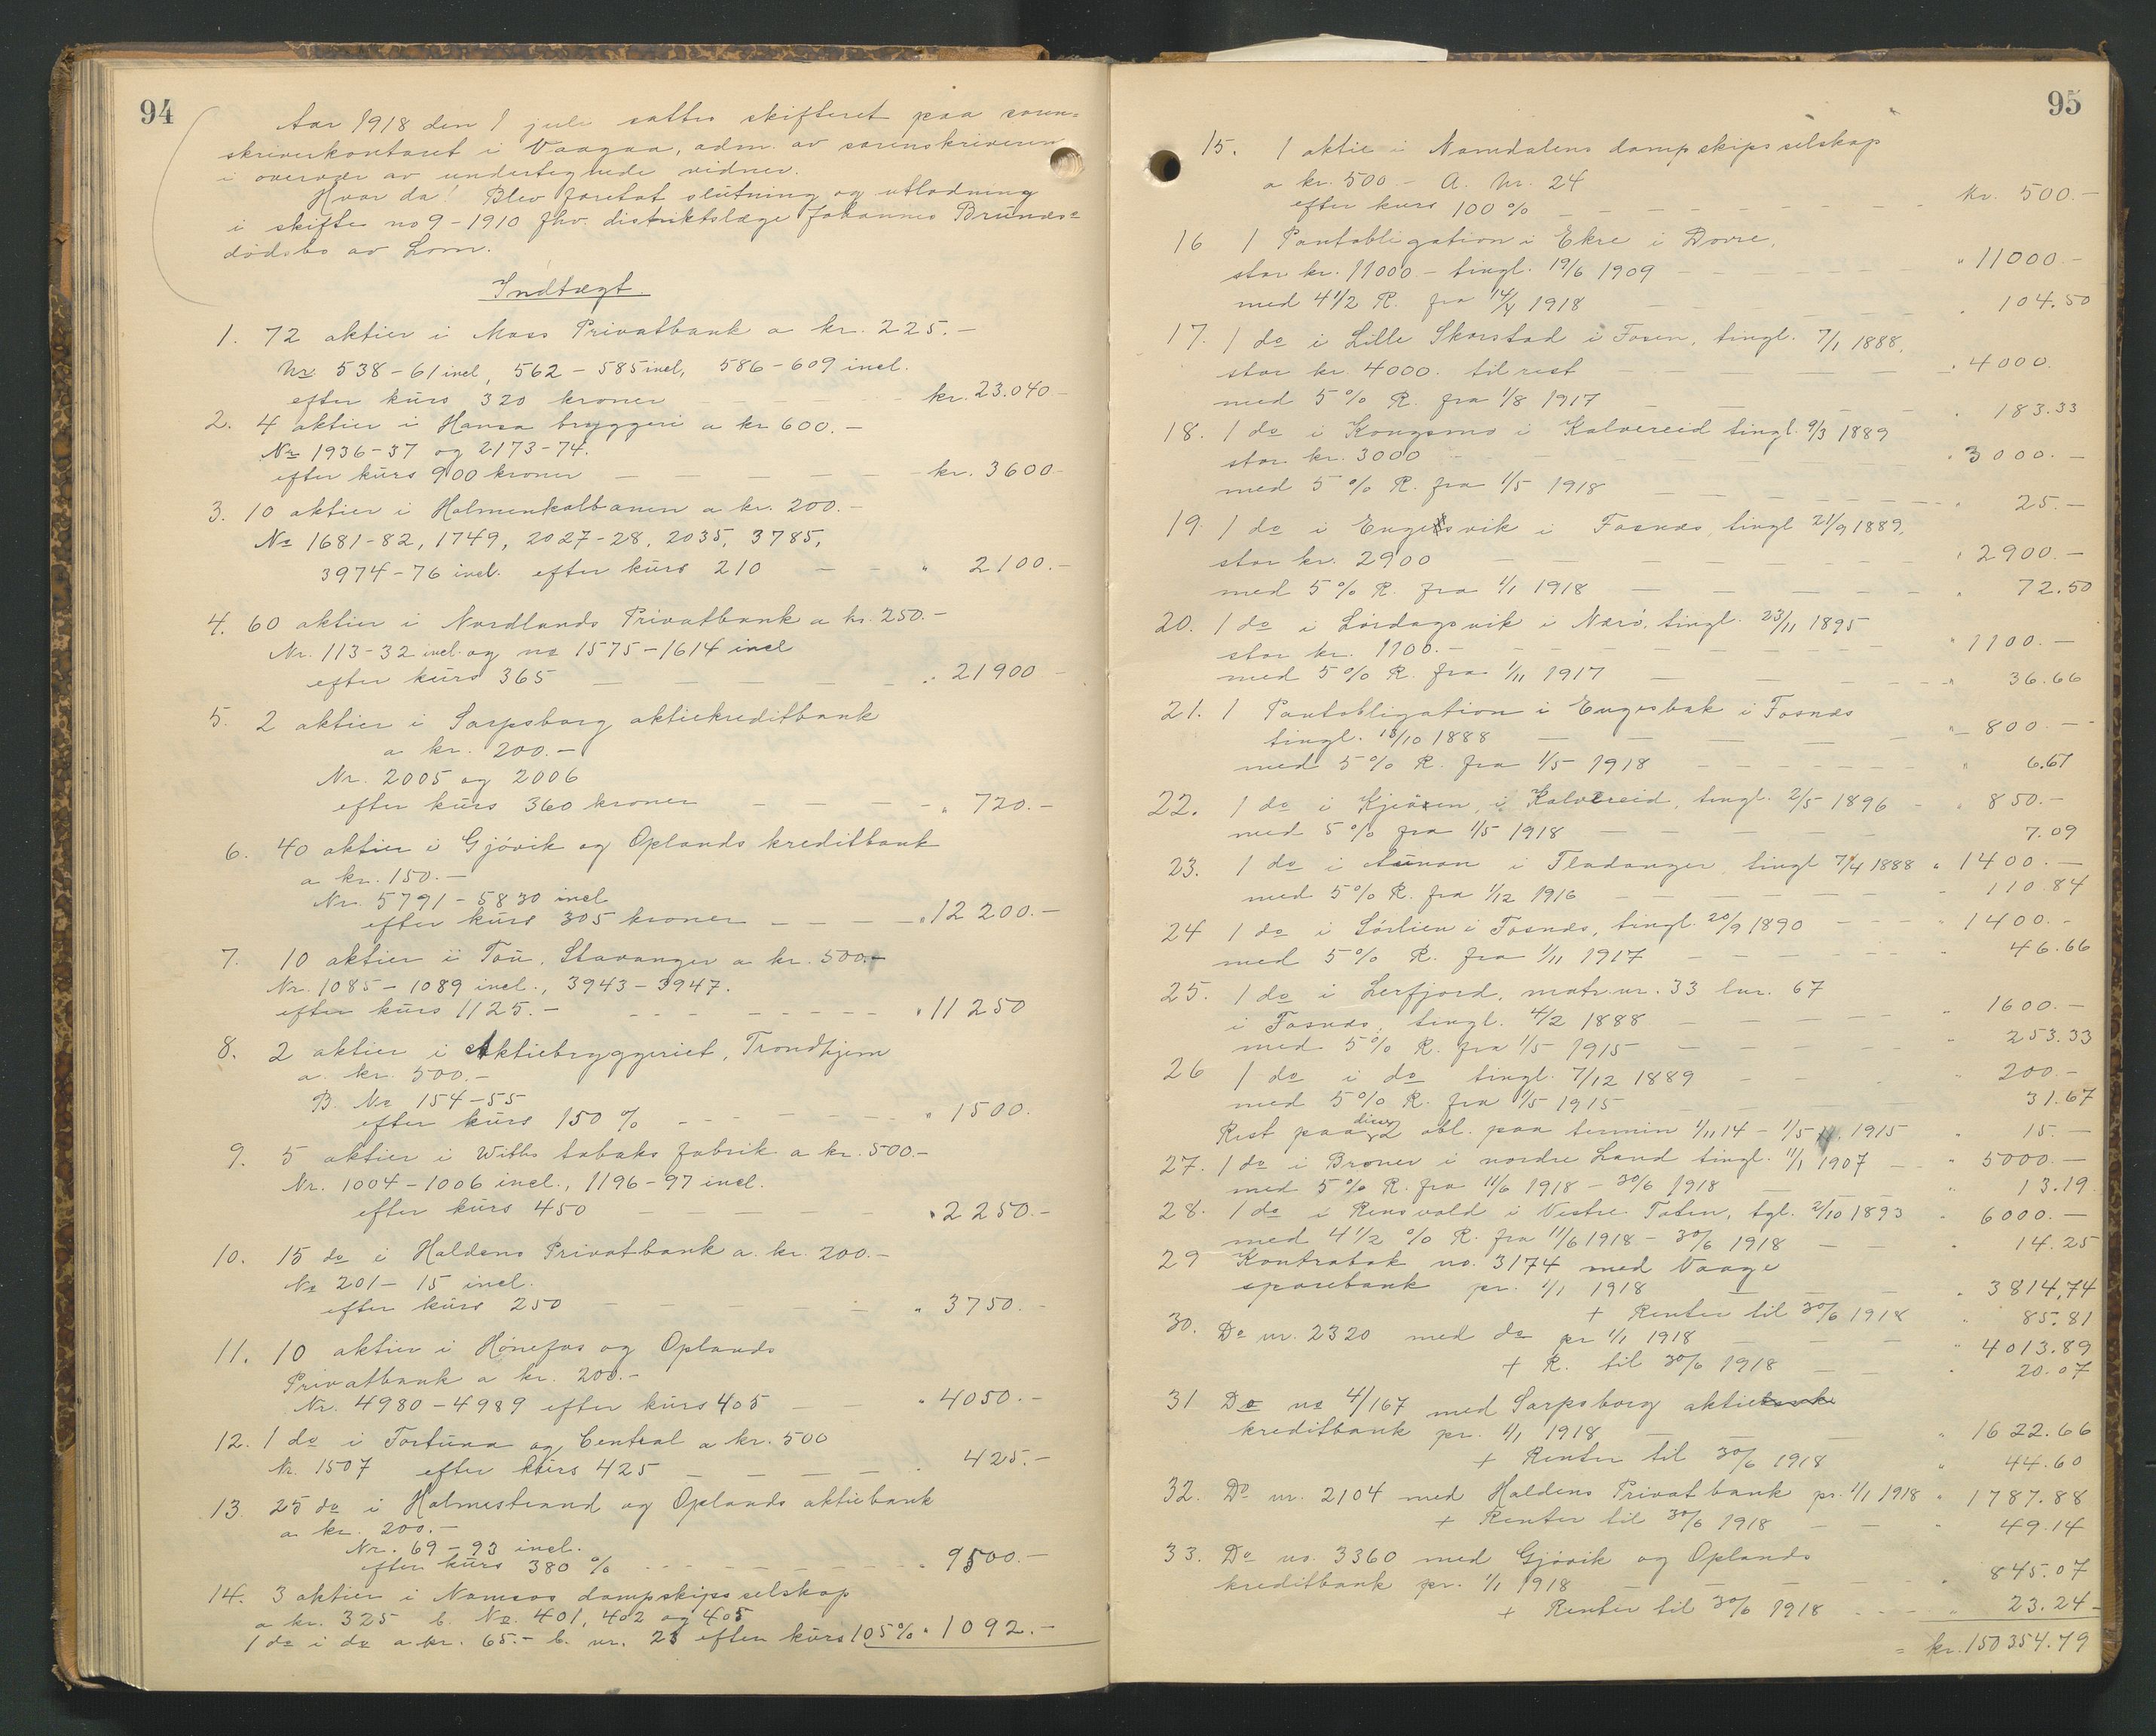 94
Aar 1918 den 1 juli sattes skifteret paa soren-
skriverkontoret i Vaagaa, adm. av sorenskriveren
i overvær av undertegnede vidner.
Hvor da! Blev foretat slutning og utlodning
i skifte no 9-1910 fhv. distriktslæge Johannes Brunds-
dödsbo av Lom.
Indtægt.
1. 72 aktier i Moss Privatbank a kr. 225.-
Nr. 538-61 incl, 562-585 incl, 586-609 incl.
efter kurs 320 kroner kr. 23.040-
2. 4 aktier i Hansa bryggeri a kr 600.-
Nr 1936-37 og 2173-74.
efter kurs 900 kroner kr. 3600-
3. 10 aktier i Holmenkolbanen a kr. 200.-
No 1681-82, 1749, 2027-28, 2035, 3785,
3974-76 incl. efter kurs 210 " 2100.-
4. 60 aktier i Nordlands Privatbank a kr. 250.-
Nr. 113-32 incl. og no 1575-1614 incl
efter kurs 365 " 21900-
5. 2 aktier i Sarpsborg aktiekreditbank
a kr. 200.-
Nr. 2005 og 2006
efter kurs 360 kroner " 720.-
6. 40 aktier i Gjövik og Oplands kreditbank
a kr. 150.-
Nr. 5791-5830 incl
efter kurs 305 kroner " 12200.-
7. 10 aktier i Tou, Stavanger a kr. 500.-
Nr. 1085-1089 incl., 3943-3947.
efter kurs 1125.- " 11250
8. 2 aktier i Aktiebryggeriet, Trondhjem
a kr. 500.-
B. Nr 154-55
efter kurs 150 % " 1500.
9. 5 aktier i Withs tobaks fabrik a kr. 500.-
Nr. 1004-1006 incl., 1196-97 incl.
efter kurs 450 " 2250.-
10. 15 do i Haldens Privatbank a kr. 200.-
No 201-15 incl.
efter kurs 250 " 3750.-
11. 10 aktier i Hönefos og Oplands
Privatbank a kr. 200.-
Nr. 4980-4989 efter kurs 405 " 4050.-
12. 1 do i Fortuna og Central a kr. 500
Nr. 1507 efter kurs 425 " 425.-
13. 25 do i Holmestrand og Oplands aktiebank
a kr. 200.-
Nr. 69-93 incl.
efter kurs 380 % " 9500.-
14. 3 aktier i Namsos dampskipsselskap
a kr. 325 b. No. 401, 402 og 405
1 do i do a kr. 65.- b. nr. 23 efter kurs 105 % " 1092.-
95
15. 1 aktie i Namdalens dampskipsselskap
a kr. 500- A. Nr. 24
efter kurs 100 % kr. 500.-
16 1 Pantobligation i Ekre i Dovre,
stor kr. 11000- tingl. 19/6 1909 " 11000-
med 4 1/2 R. fra 14/4 1918 " 104.50
17. 1 do i Lille Skorstad i Fosen, tingl. 7/1 1888,
stor kr. 4000. til rest " 4000.
med 5 % R. fra 1/8 1917 " 183.33
18. 1 do i Kongsmo i Kolvereid tingl. 9/3 1889
stor kr. 3000 " 3000.-
med 5 % R. fra 1/5 1918 " 25.-
19. 1 do i Engesvik i Fosnæs, tingl 21/9 1889,
stor kr. 2900 " 2900.-
med 5 % R. fra 1/1 1918 " 72.50
20. 1 do i Lördagsvik i Nærö, tingl. 23/11 1895
stor kr. 1100.- " 1100.-
med 5 % R. fra 1/11 1917 " 36.66
21. 1 Pantobligation i Engesbak i Fosnæs
tingl. 13/10 1888 " 800.-
med 5 % R. fra 1/5 1918 " 6.67
22. 1 do i Kjeösen, i Kolvereid, tingl. 2/5 1896 " 850.-
med 5 % fra 1/5 1918 7.09
23. 1 do i Aunan i Fladanger, tingl 7/4 1888 " 1400.-
med 5 % R. fra 1/12 1916 " 110.84
24 1 do i Sörlien i Fosnæs, tingl. 20/9 1890 " 1400.-
med 5 % R. fra 1/11 1917 46.66
25. 1 do i Lerfjord, matr.nr. 33 lnr. 67
i Fosnæs, tingl. 4/2 1888 " 1600.-
med 5 % R. fra 1/5 1915 " 253.33
26 1 do i do tingl. 7/12 1889 " 200.-
med 5 % R. fra 1/5 1915 31.67
Rest paa disse 2 obl. paa termin 1/11 14 - 1/5 1915 " 15.-
27. 1 do i Broner i nordre Land tingl. 11/1 1907 " 5000.-
med 5 % R. fra 11/6 1918 - 30/6 1918 " 13.19
28. 1 do i Rensvold i Vestre Toten, tgl. 2/10 1893 " 6000.-
med 4 1/2 % R. fra 11/6 1918 - 30/6 1918 14.25
29 Kontrabok no. 3174 med Vaage
sparebank pr. 1/1 1918 " 3814.74
+ Renter til 30/6 1918 " 85.81
30. Do nr. 2320 med do pr 1/1 1918 " 4013.89
+ R. til 30/6 1918 " 20.07
31 Do no 4/167 med Sarpsborg aktiebank
kreditbank pr. 1/1 1918 " 1622.66
+ Renter til 30/6 1918 " 44.60
32. Do nr. 2104 med Haldens Privatbank pr. 1/1 1918 " 1787.88
+ Renter til 30/6 1918 " 49.14
33. Do no. 3360 med Gjövik og Oplands
kreditbank pr. 1/1 1918 " 845.07
+ Renter til 30/6 1918 " 23.24
= kr. 150354.79